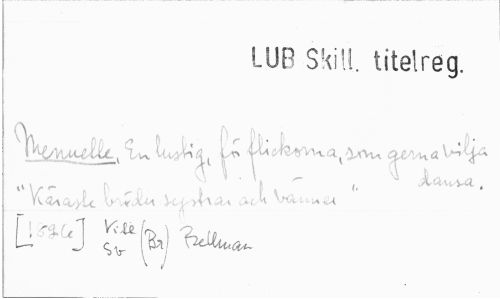 LUB Skill. titelreg.
Menuelle, En lustig, för flickorna, som gerna vilja
dansa.
"Käraste bröder systrar och vänner"
[1826] Vise (Br) Bellman
Sv